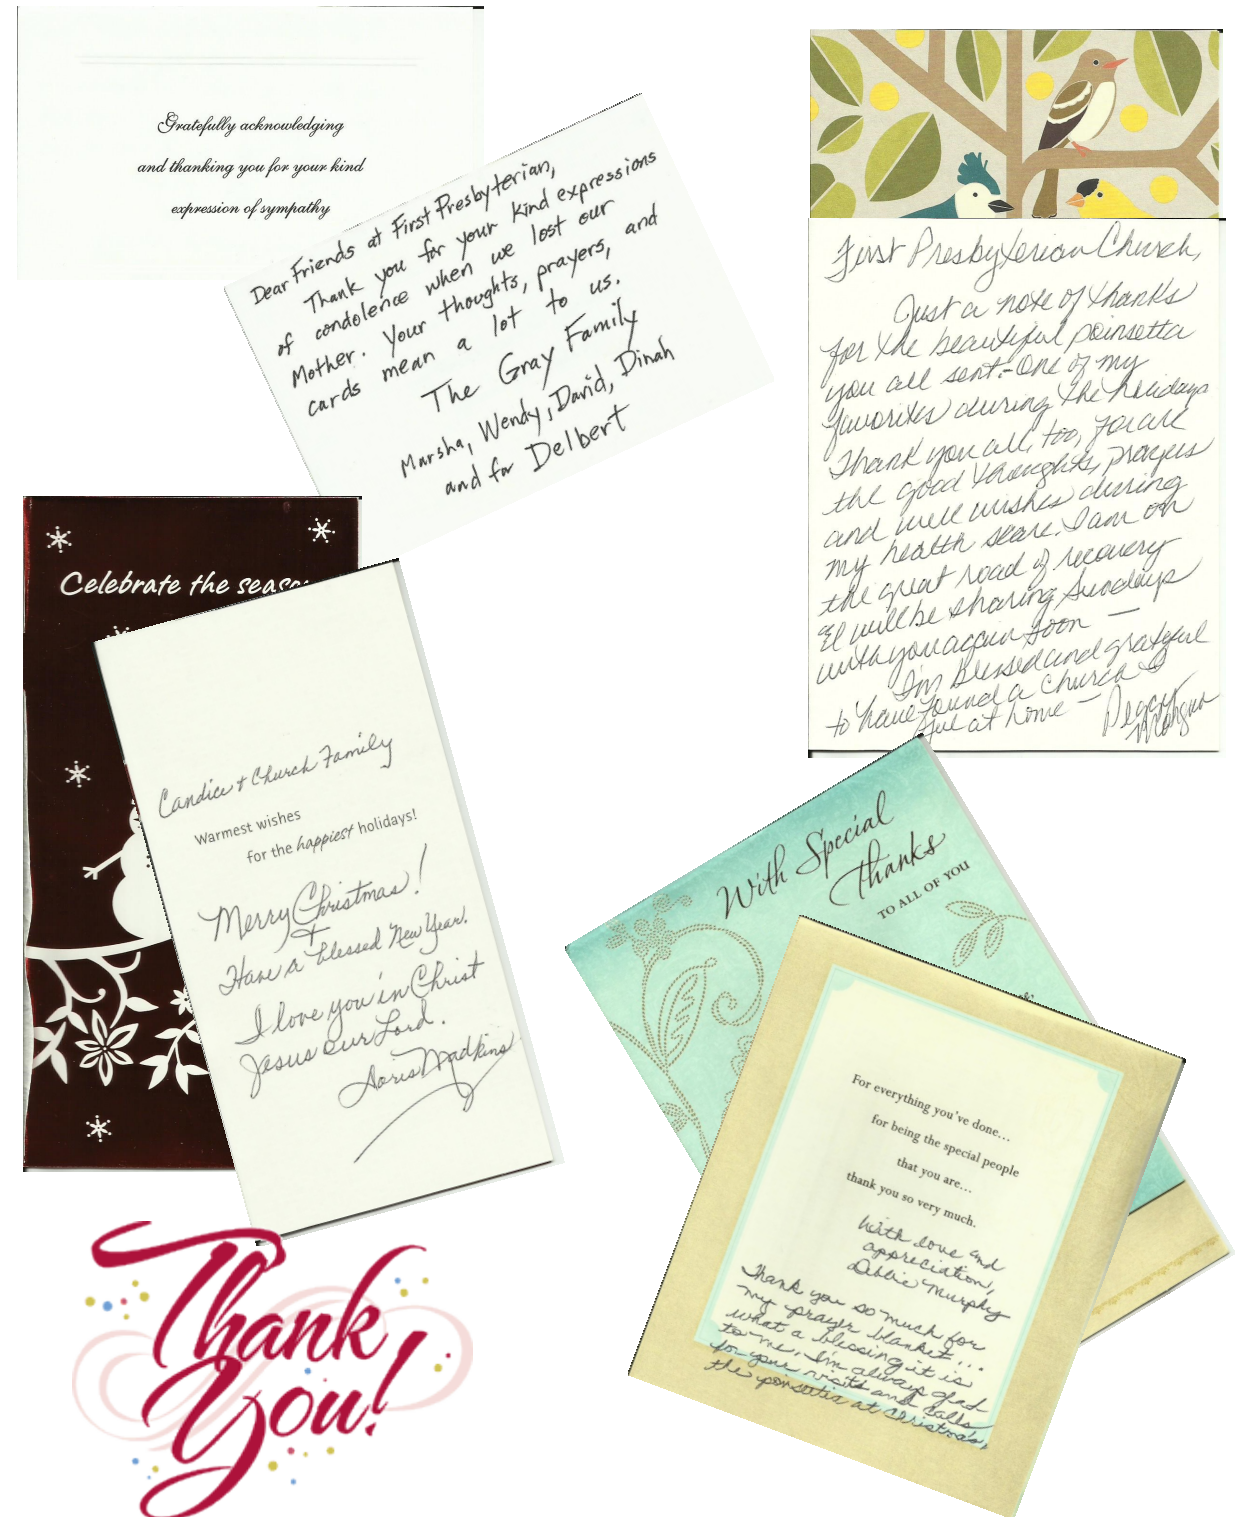 Gratefully acknowledging
and thanking you for your kind
expression of sympathy
Dear Friends at First Presbyterian,
Thank you for your kind expressions
of condolence when we lost our
Mother. Your thoughts, prayers, and
cards mean a lot to us.
The Gray Family
Marsha, Wendy, David, Dinah
and for Delbert
First Presbyterian Church,
Just a note of thanks
for the beautiful poinsetta
you all sent. - One of my
favorites during the holidays
Thank you all, too, for are
the good thoughts, prayers
and well wishes during
my health scare. I am on
the great road of recovery
& I will be sharing Sundays
with you again soon —
I'm blessed and grateful
to have found a church I
feel at home —
Peggy
Celebrate the seaso
Candice & Church Family
Warmest wishes
for the happiest holidays!
Merry Christmas!
+
Have a blessed New Year.
I love you in Christ
Jesus our Lord.
Doris Madkins
With Special
Thanks
TO ALL OF YOU
For everything you've done...
for being the special people
that you are...
thank you so very much.
With love and
appreciation,
Debbie Murphy
Thank you so much for
my prayer blanket...
what a blessing it is
to me. I'm always glad
for your visits and calls
the poinsettia at Christmas,
Thank
You!